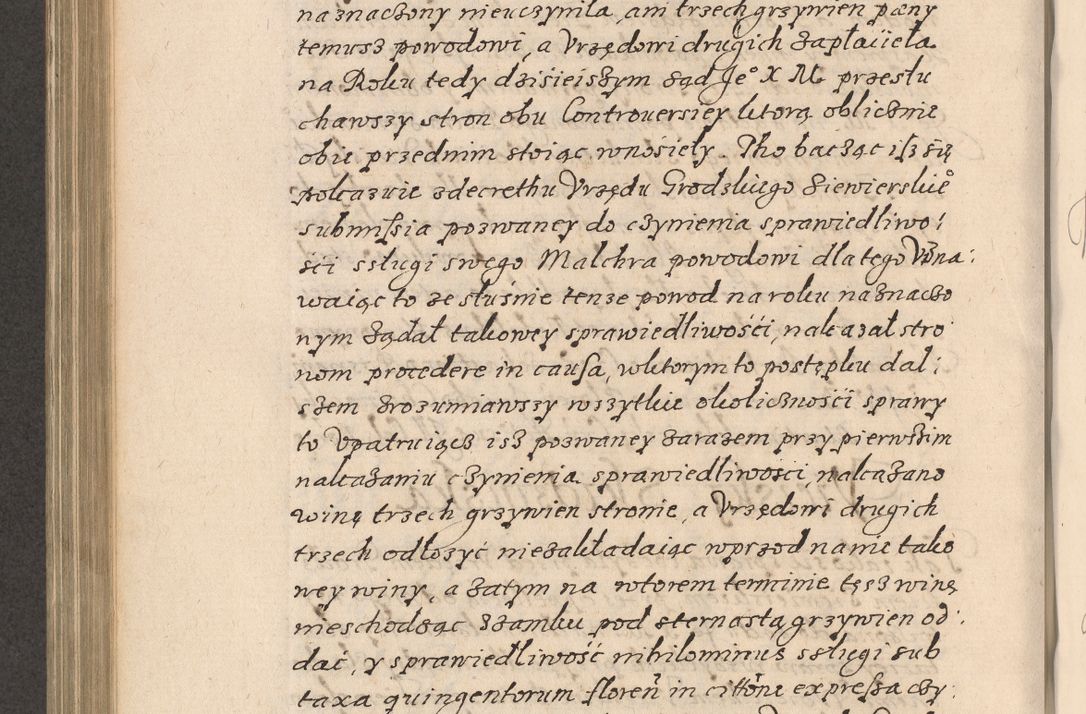 naznaczony nieuczyniła, ani trzech grzywien pæny
temusz powodowi, a Vrzędowi drugich zapłaciela
na Roku tedy dzisieiszym sąd Je° X M przesłu
chawszy stron obu Controuersiey ktorą oblicznie
obie przednim stoiąc wnosieły. Tho bacząc isz się
pokazuie zdecrethu Vrzędu Grodzkiego Siewierskie°
submissia pozwaney do czynienia sprawiedliwo:
ści sługi swego Malchra powodowi dla tego Vzna:
waiąc to ze słusnie tenze powod na roku naznaczo
nym ządał takowey sprawiedliwości, nakazał stro
nom procedere in causa, wktorym to postępku dal:
szem zrozumiawszy wszytkie okoliczności sprawy
to Vpatruiącz isz pozwaney zarazem przy pierwszim
nakazaniu czynienia sprawiedliwości, nakazano
winę trzech grzywien stronie, a Vrzędowi drugich
trzech odłozyć niezakładaiąc wprzod na nie tako
wey winy, a zatym na wtorem terminie tęsz winę
nieschodząc szamku pod sternastą grzywien od:
dać, y sprawiedliwość nihilominus sługi sub
taxa quingentorum floren in cittõne expressa czy: